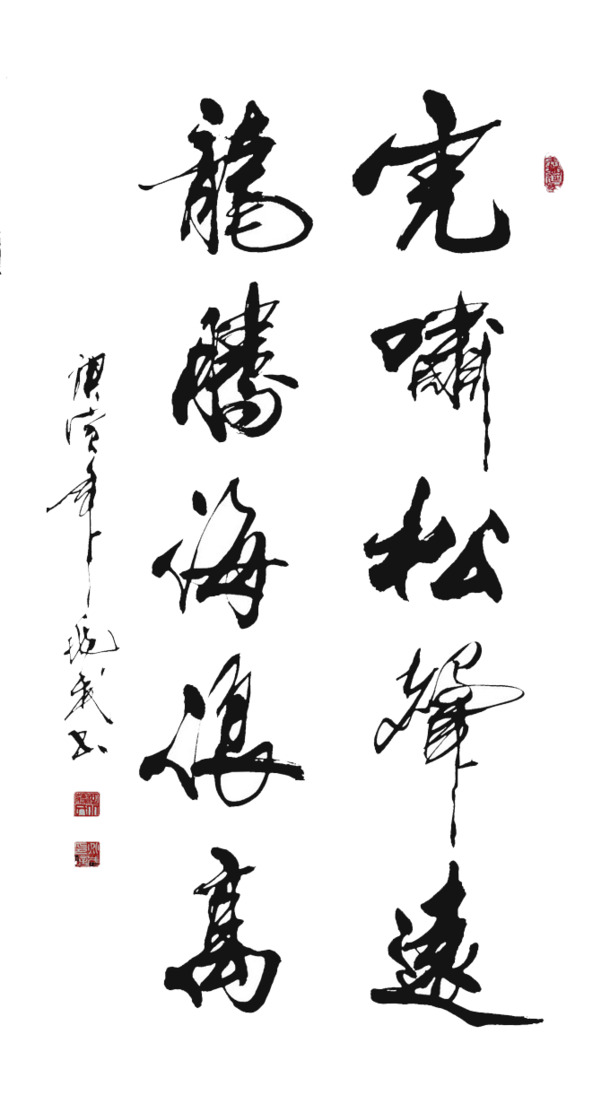 虎嘯松聲遠
龍騰海浪高
庚寅年
書